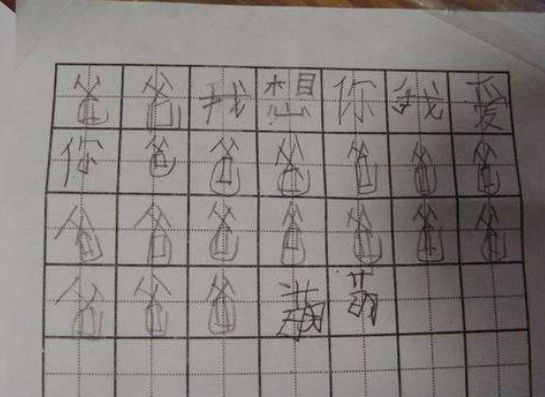 爸爸我想你我爱
你爸爸爸爸爸爸
爸爸爸爸爸爸爸
爸爸爸萌